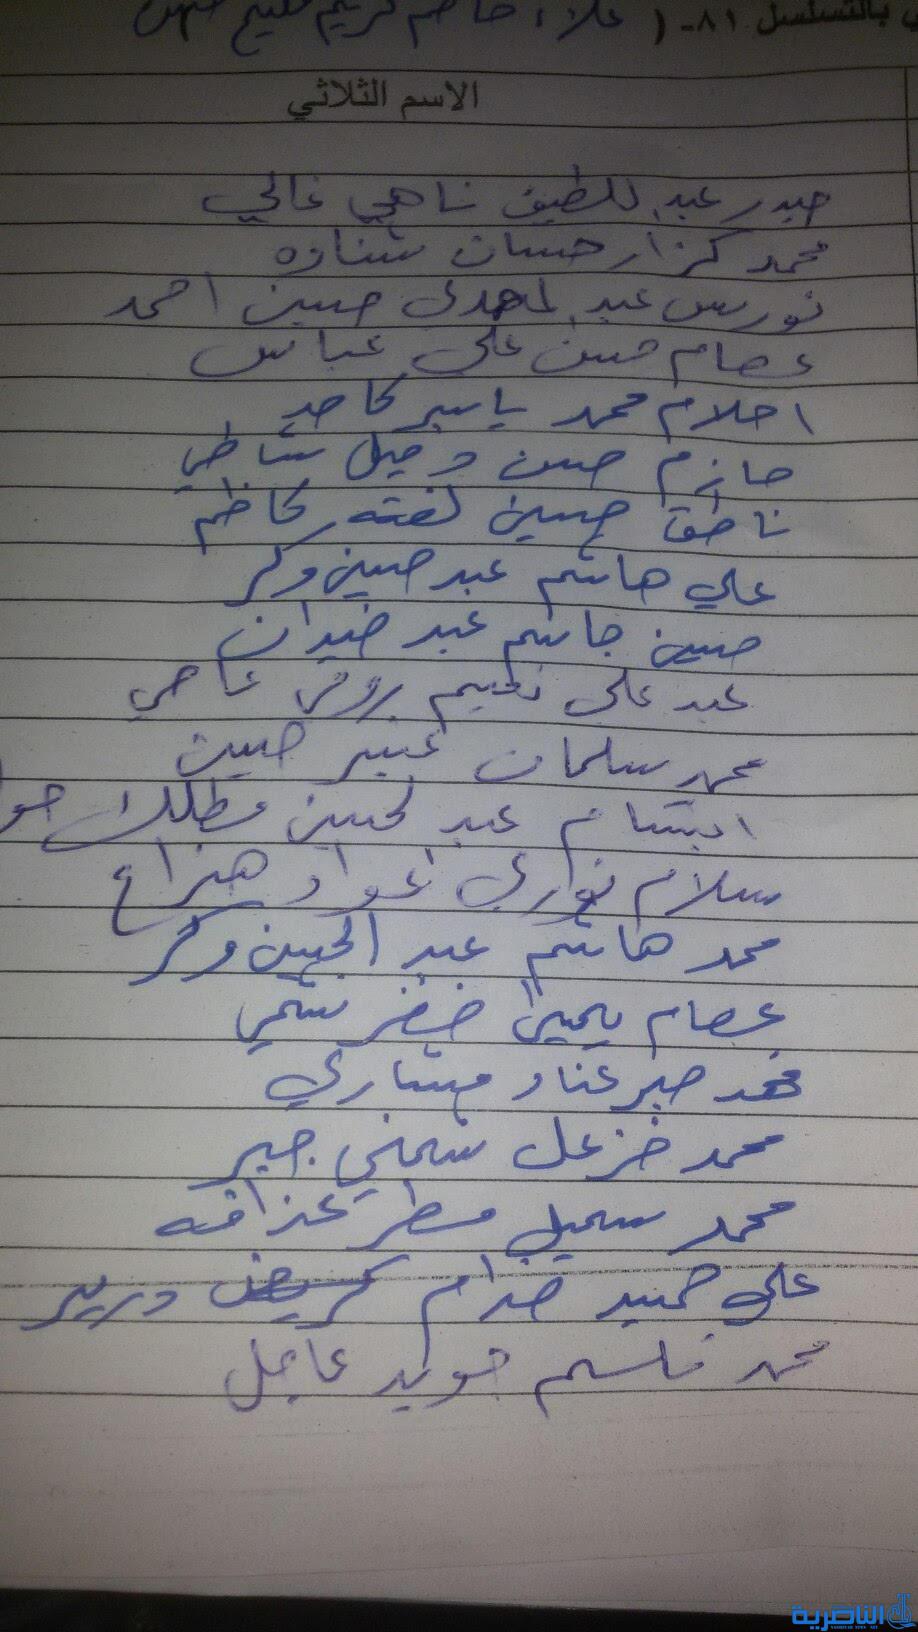 بالتسلسل ٨١- ( علاء كريم
الاسم الثلاثي
حيدر عبد اللطيف ناهي غالي
محمد كزار حسان شناوه
نورس عبد المهدي حسين احمد
عصام حسن علي عباس
احلام محمد ياسر كاصد
حازم حسن دخيل شاطي
ناطق حسين لفته كاظم
علي هاشم عبد حسين وكر
حسين جاسم عبد ضيدان
عبد علي نعيم
محمد سلمان حسين
ابتسام عبد الحسين مطلك
سلام نوري عواد هزاع
محمد هاشم عبد الحسين وكر
عصام يحيى خضر
فهد جبر عناد مشاري
محمد خزعل جبر
محمد سهيل مطر عذافه
علي حميد
محمد قاسم
الناصرية